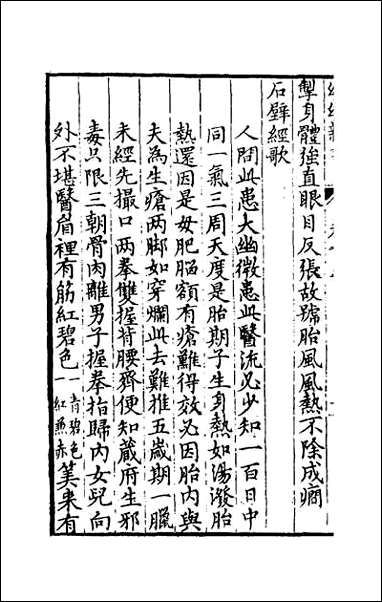 掣身體強直眼目反張故號胎風風熱不除成癇
石壁經歌
人間此患大幽微患此醫流必少知一百日中
同一氣三周天度是胎期子生身熱如湯潑胎
熱還因是母肥腦額有瘡難得效必因胎內與
夫為生瘡兩脚如穿爛此去難推五歲期一臘
未經先撮口兩拳雙握背腰齊便知藏府生邪
毒只限三朝骨肉離男子握拳指歸內女兒向
外不堪醫眉裡有筋紅碧色一青碧色一紅𠔥赤笑來有